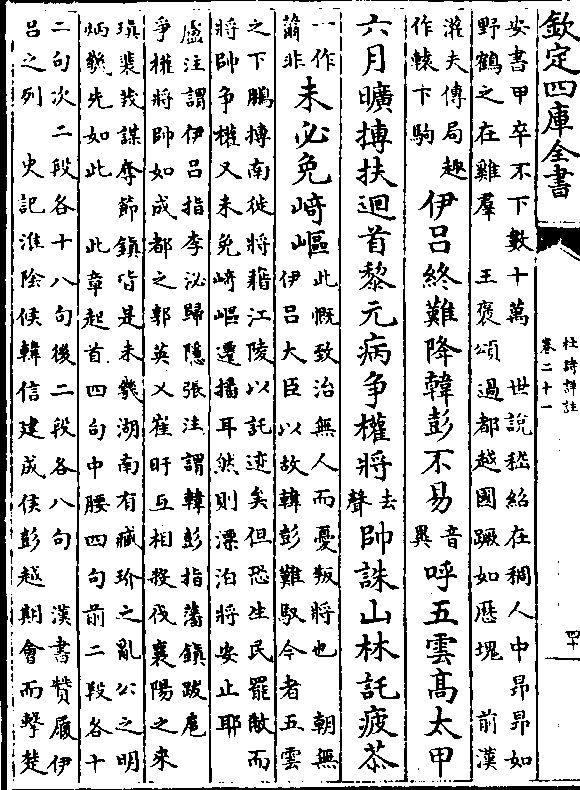 欽定四庫全書
杜詩詳註
卷二十一
四十
安書甲卒不下數十萬　世說嵇紹在稠人中昂昂如
野鶴之在雞羣　王褒頌過都越國蹶如歷塊　前漢
灌夫傳局趣
作轅下駒
伊吕終難降韓彭不易
音
異
呼五雲髙太甲
六月曠摶扶迴首黎元病争權將
去
聲
帥誅山林託疲苶
一作
蕭非
未必免崎嶇
此慨致治無人而憂叛將也　朝無
伊吕大臣以故韓彭難馭今者五雲
之下鵬摶南徙將藉江陵以託迹矣但恐生民罷敝而
將帥争權又未免崎嶇遷播耳然則漂泊將安止耶
盧注謂伊吕指李泌歸隱張注謂韓彭指藩鎮跋扈
争權將帥如成都之郭英乂崔旰互相殺伐襄陽之來
瑱裴茙謀奪節鎮皆是未幾湖南有臧玠之亂公之明
炳幾先如此　此章起首四句中腰四句前二段各十
二句次二段各十八句後二段各八句　漢書贊履伊
吕之列　史記淮陰侯韓信建成侯彭越期會而擊楚